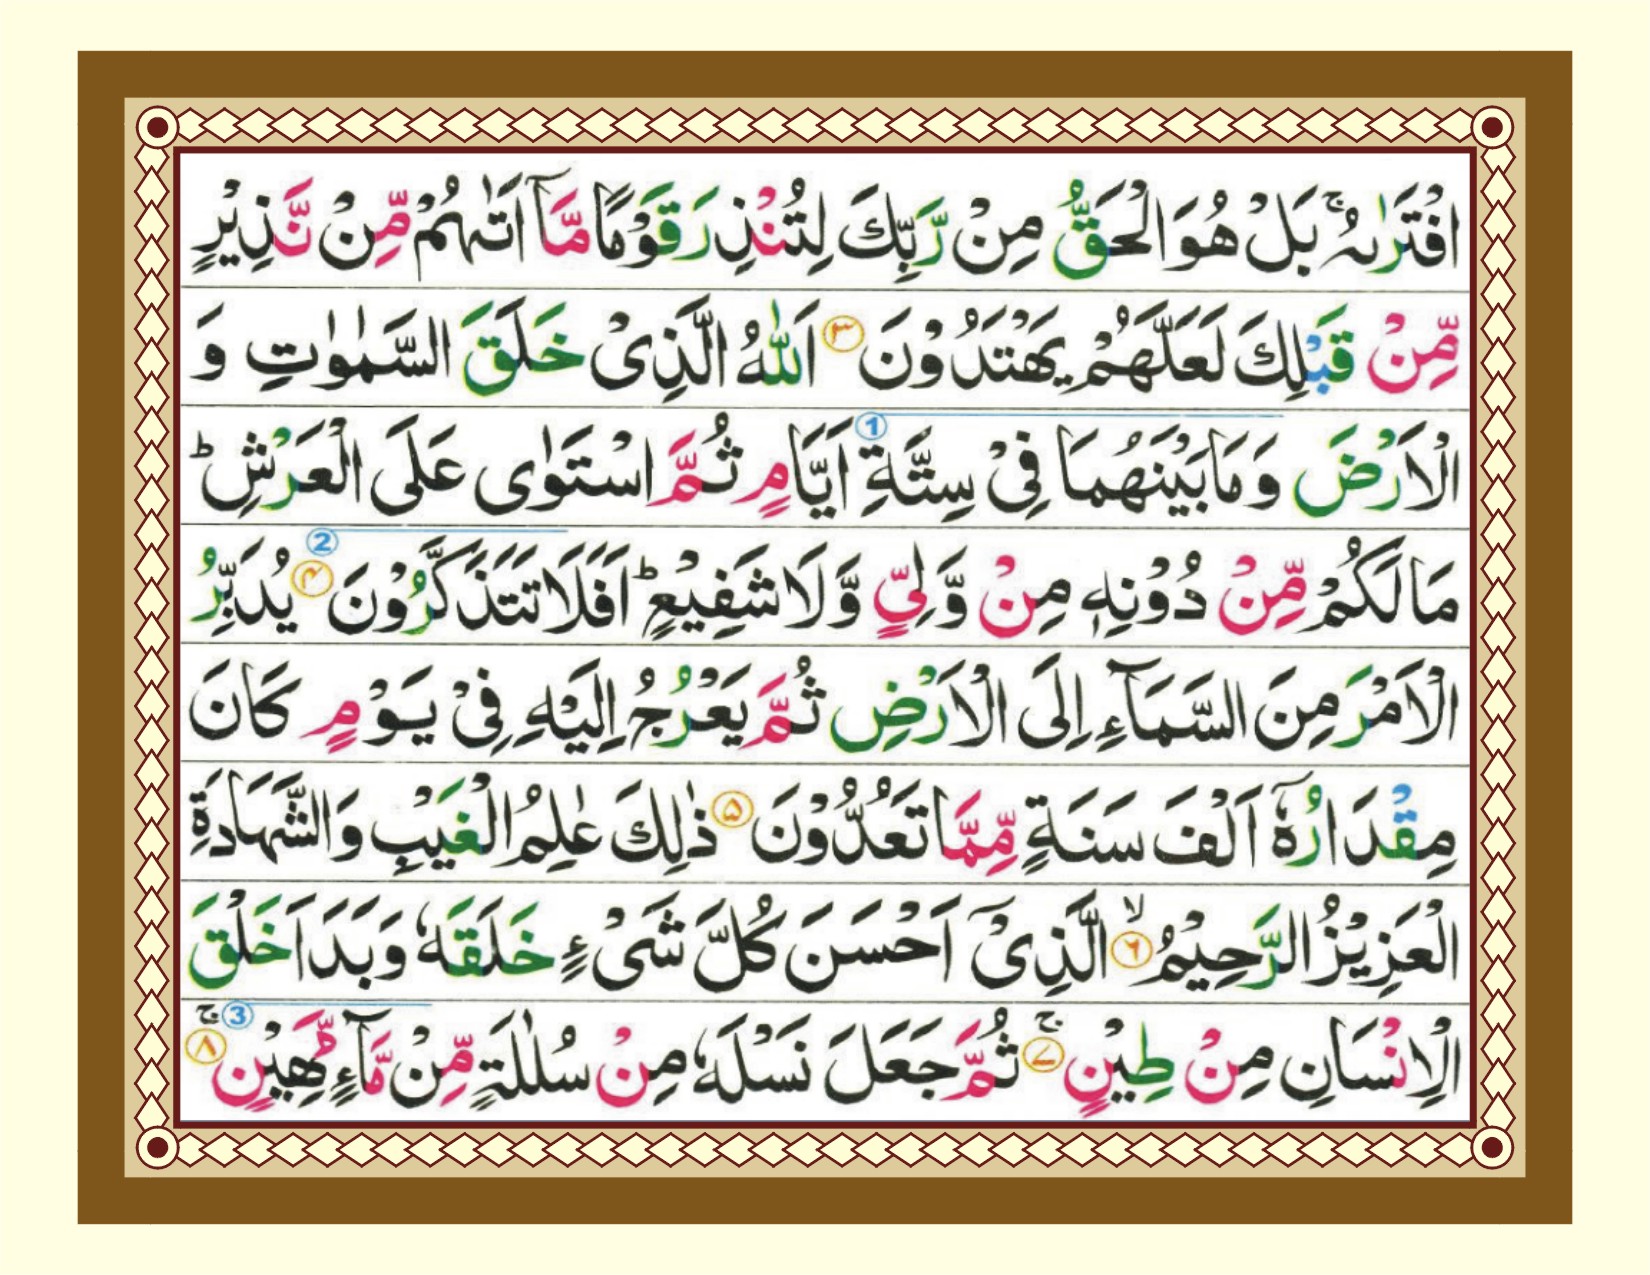 افْتَرٰىهُ ۚ بَلْ هُوَ الْحَقُّ مِنْ رَّبِّكَ لِتُنْذِرَ قَوْمًا مَّاۤ اَتٰىهُمْ مِّنْ نَّذِیْرٍ
مِّنْ قَبْلِكَ لَعَلَّهُمْ یَهْتَدُوْنَ ۳ اَللّٰهُ الَّذِیْ خَلَقَ السَّمٰوٰتِ وَ
الْاَرْضَ وَمَا بَیْنَهُمَا فِیْ سِتَّةِ 1 اَیَّامٍ ثُمَّ اسْتَوٰی عَلَی الْعَرْشِ ؕ
مَا لَكُمْ مِّنْ دُوْنِهٖ مِنْ وَّلِیٍّ وَّلَا شَفِیْعٍ ؕ اَفَلَا تَتَذَكَّرُوْنَ ۴ 2 یُدَبِّرُ
الْاَمْرَ مِنَ السَّمَآءِ اِلَی الْاَرْضِ ثُمَّ یَعْرُجُ اِلَیْهِ فِیْ یَوْمٍ كَانَ
مِقْدَارُهٗۤ اَلْفَ سَنَةٍ مِّمَّا تَعُدُّوْنَ ۵ ذٰلِكَ عٰلِمُ الْغَیْبِ وَالشَّهَادَةِ
الْعَزِیْزُ الرَّحِیْمُ ۶ۙ الَّذِیْۤ اَحْسَنَ كُلَّ شَیْءٍ خَلَقَهٗ وَبَدَاَ خَلْقَ
الْاِنْسَانِ مِنْ طِیْنٍ ۷ۚ ثُمَّ جَعَلَ نَسْلَهٗ مِنْ سُلٰلَةٍ مِّنْ مَّآءٍ مَّهِیْنٍ ۸ۚ 3